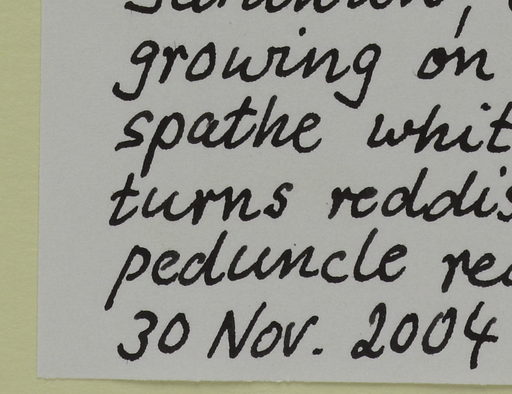 growing on
spathe whit
turns reddis
peduncle red
30 Nov. 2004